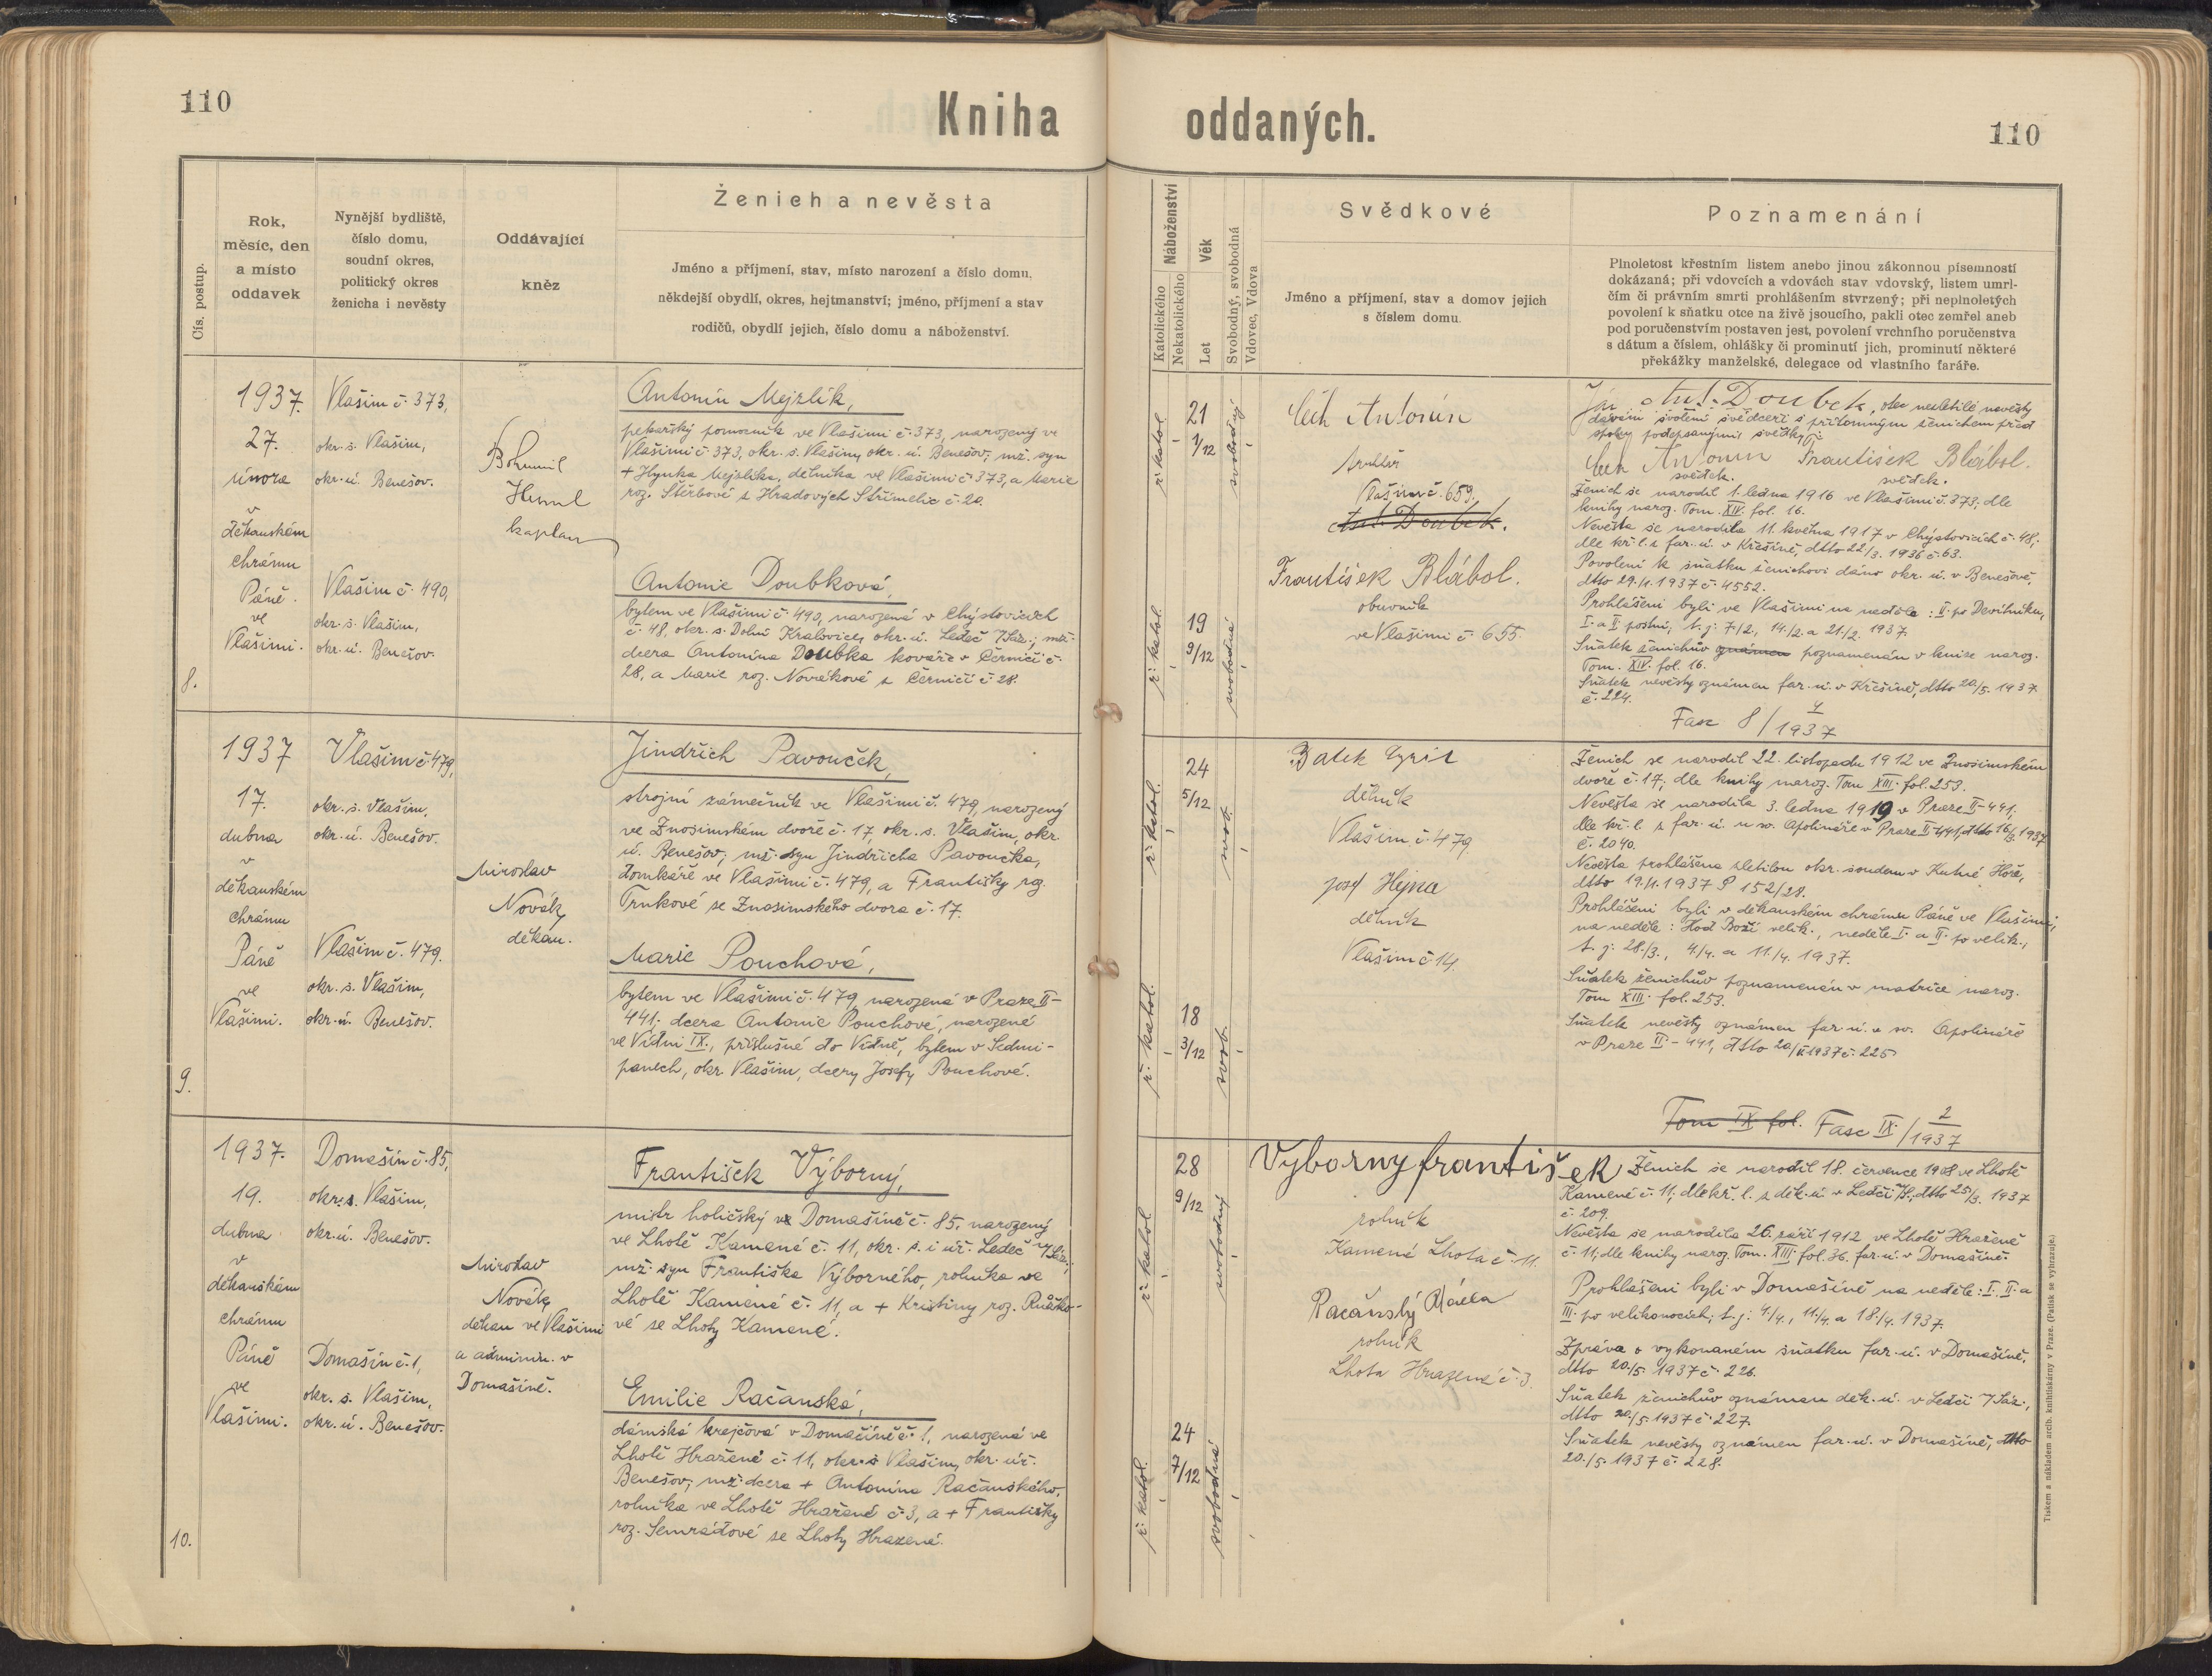 110
Kniha
Čís. postup.
Rok,
měsíc, den
a místo
oddavek
Nynější bydliště,
číslo domu,
soudní okres,
politický okres
ženicha i nevěsty
Oddávající
kněz
Ženich a nevěsta
Jméno a příjmení, stav, místo narození a číslo domu,
někdejší obydlí, okres, hejtmanství; jméno, příjmení a stav
rodičů, obydlí jejich, číslo domu a náboženství.
8.
1937.
27.
února
v
děkanském
chrámu
Páně
ve
Vlašimi.
Vlašim č. 373,
okr. s. Vlašim,
okr. ú. Benešov.
Vlašim č. 490,
okr. s. Vlašim,
okr. ú. Benešov.
Bohumil
kaplan
Antonín Mejzlík,
pekařský pomocník ve Vlašimi č. 373, narozený ve
Vlašimi č. 373, okr. s. Vlašim, okr. ú. Benešov; mž. syn
+ Hynka Mejzlíka, dělníka ve Vlašimi č. 373, a Marie
roz. Štěrbové z Hradových Střimelic č. 20.
Antonie Doubková,
bytem ve Vlašimi č. 490, narozená v Chýstovicích
č. 48, okr. s. Dolní Kralovice, okr. ú. Ledeč n/Sáz.; mž.
dcera Antonína Doubka kováře v Černičí č.
28, a Marie roz. Novákové z Černičí č. 28.
9.
1937
17.
dubna
v
děkanském
chrámu
Páně
ve
Vlašimi.
Vlašim č. 479,
okr. s. Vlašim,
okr. ú. Benešov.
Vlašim č. 479.
okr. s. Vlašim,
okr. ú. Benešov.
Miroslav
Novák,
děkan.
Jindřich Pavouček,
strojní zámečník ve Vlašimi č. 479, narozený
ve Znosimském dvoře č. 17, okr. s. Vlašim, okr.
ú. Benešov; mž. syn Jindřicha Pavoučka,
domkáře ve Vlašimi č. 479, a Františky roz.
Trnkové se Znosimského dvora č. 17.
Marie Pouchová,
bytem ve Vlašimi č. 479, narozená v Praze II-
441; dcera Antonie Pouchové, narozené
ve Vídni IX., příslušné do Vídně, bytem v Sedmi-
panech, okr. Vlašim, dcery Josefy Pouchové.
10.
1937.
19.
dubna
v
děkanském
chrámu
Páně
ve
Vlašimi.
Domašín č. 85,
okr. s. Vlašim,
okr. ú. Benešov.
Domašín č. 1,
okr. s. Vlašim,
okr. ú. Benešov.
Miroslav
Novák,
děkan ve Vlašimi
a administr. v
Domašíně.
František Výborný,
mistr holičský v Domašíně č. 85, narozený
ve Lhotě Kamené č. 11, okr. s. i úř. Ledeč n/Sáz.;
mž. syn Františka Výborného, rolníka ve
Lhotě Kamené č. 11, a + Kristiny roz. Růžko-
vé se Lhoty Kamené.
Emilie Račanská,
dámská krejčová v Domašíně č. 1, narozená ve
Lhotě Hražené č. 11, okr. s. Vlašim, okr. úř.
Benešov; mž. dcera + Antonína Račanského,
rolníka ve Lhotě Hražené č. 3, a + Františky
roz. Semrádové se Lhoty Hrazené.
oddaných.
110
Náboženství
Katolického
Nekatolického
Věk
Let
Svobodný, svobodná
Vdovec, Vdova
Svědkové
Jméno a příjmení, stav a domov jejich
s číslem domu.
Poznamenání
Plnoletost křestním listem anebo jinou zákonnou písemností
dokázaná; při vdovcích a vdovách stav vdovský, listem umrl-
čím či právním smrti prohlášením stvrzený; při neplnoletých
povolení k sňatku otce na živě jsoucího, pakli otec zemřel aneb
pod poručenstvím postaven jest, povolení vrchního poručenstva
s dátum a číslem, ohlášky či prominutí jich, prominutí některé
překážky manželské, delegace od vlastního faráře.
ř. katol.
21
1/12
svobodný
ř. katol.
19
9/12
svobodná
Čech Antonín
truhlář
Vlašim č. 659.
Ant. Doubek.
František Blábol.
obuvník
ve Vlašimi č. 655.
Já, Ant. Doubek, otec nezletilé nevěsty
dávám svolení své dceři s přítomným ženichem před
spolu podepsanými svědky:
Čech Antonín František Blábol.
svědek. svědek.
Ženich se narodil 1. ledna 1916 ve Vlašimi č. 373; dle
knihy naroz. Tom. XIV. fol. 16.
Nevěsta se narodila 11. května 1917 v Chýstovicích č. 48;
dle kř. l. z far. ú. v Křešíně, dtto 22/3. 1936 č. 63.
Povolení k sňatku ženichovi dáno okr. ú. v Benešově,
dtto 29./1. 1937 č. 4552.
Prohlášeni byli ve Vlašimi na neděle: II. po Devítníku,
I. a II. postní, t. j. 7./2., 14./2. a 21./2. 1937.
Sňatek ženichův oznámen poznamenán v knize naroz.
Tom. XIV. fol. 16.
Sňatek nevěsty oznámen far. ú. v Křešíně, dtto 20/5. 1937
č. 224.
Fasc 8/4 1937
ř. katol.
24
5/12
svob.
ř. katol.
18
3/12
svob.
Batek Cyril
dělník
Vlašim č. 479
Josef Hejna
dělník
Vlašim č. 14.
Ženich se narodil 22. listopadu 1912 ve Znosimském
dvoře č. 17, dle knihy naroz. Tom XIII. fol. 253.
Nevěsta se narodila 3. ledna 1919 v Praze II-441;
dle kř. l. z far. ú. u sv. Apolináře v Praze II-441, dtto 16/3. 1937
č. 2040.
Nevěsta prohlášena zletilou okr. soudem v Kutné Hoře,
dtto 19./1. 1937 P 152/28.
Prohlášeni byli v děkanském chrámu Páně ve Vlašimi,
na neděle: Hod Boží velik., neděle I. a II. po velik.,
t. j: 28./3., 4/4. a 11./4. 1937.
Sňatek ženichův poznamenán v matrice naroz.
Tom XIII. fol. 253.
Sňatek nevěsty oznámen far. ú. u sv. Apolináře
v Praze II - 441, dtto 20/V. 1937 č. 225
Tom IX fol. Fasc IX/2 1937
ř. katol.
28
9/12
svobodný
ř. katol.
24
7/12
svobodná
Vyborny františek
rolník
Kamená Lhota č. 11.
Račanský
rolník
Lhota Hrazená č. 3.
Ženich se narodil 18. července 1908 ve Lhotě
Kamené č. 11; dle kř. l. z děk. ú. v Ledči n/S., dtto 25/3. 1937
č. 209.
Nevěsta se narodila 26. září 1912 ve Lhotě Hražené
č. 11; dle knihy naroz. Tom. XIII. fol. 36. far. ú. v Domašíně.
Prohlášeni byli v Domašíně na neděle: I. II. a
III. po velikonocích; t. j: 4/4., 11./4. a 18./4. 1937.
Zpráva o vykonaném sňatku far. ú. v Domašíně,
dtto 20./5. 1937 č. 226.
Sňatek ženichův oznámen děk. ú. v Ledči n/Sáz.,
dtto 20./5. 1937 č. 227.
Sňatek nevěsty oznámen far. ú. v Domašíně, dtto
20./5. 1937 č. 228.
Tiskem a nákladem arcib. knihtiskárny v Praze. (Patisk se vyhrazuje.)